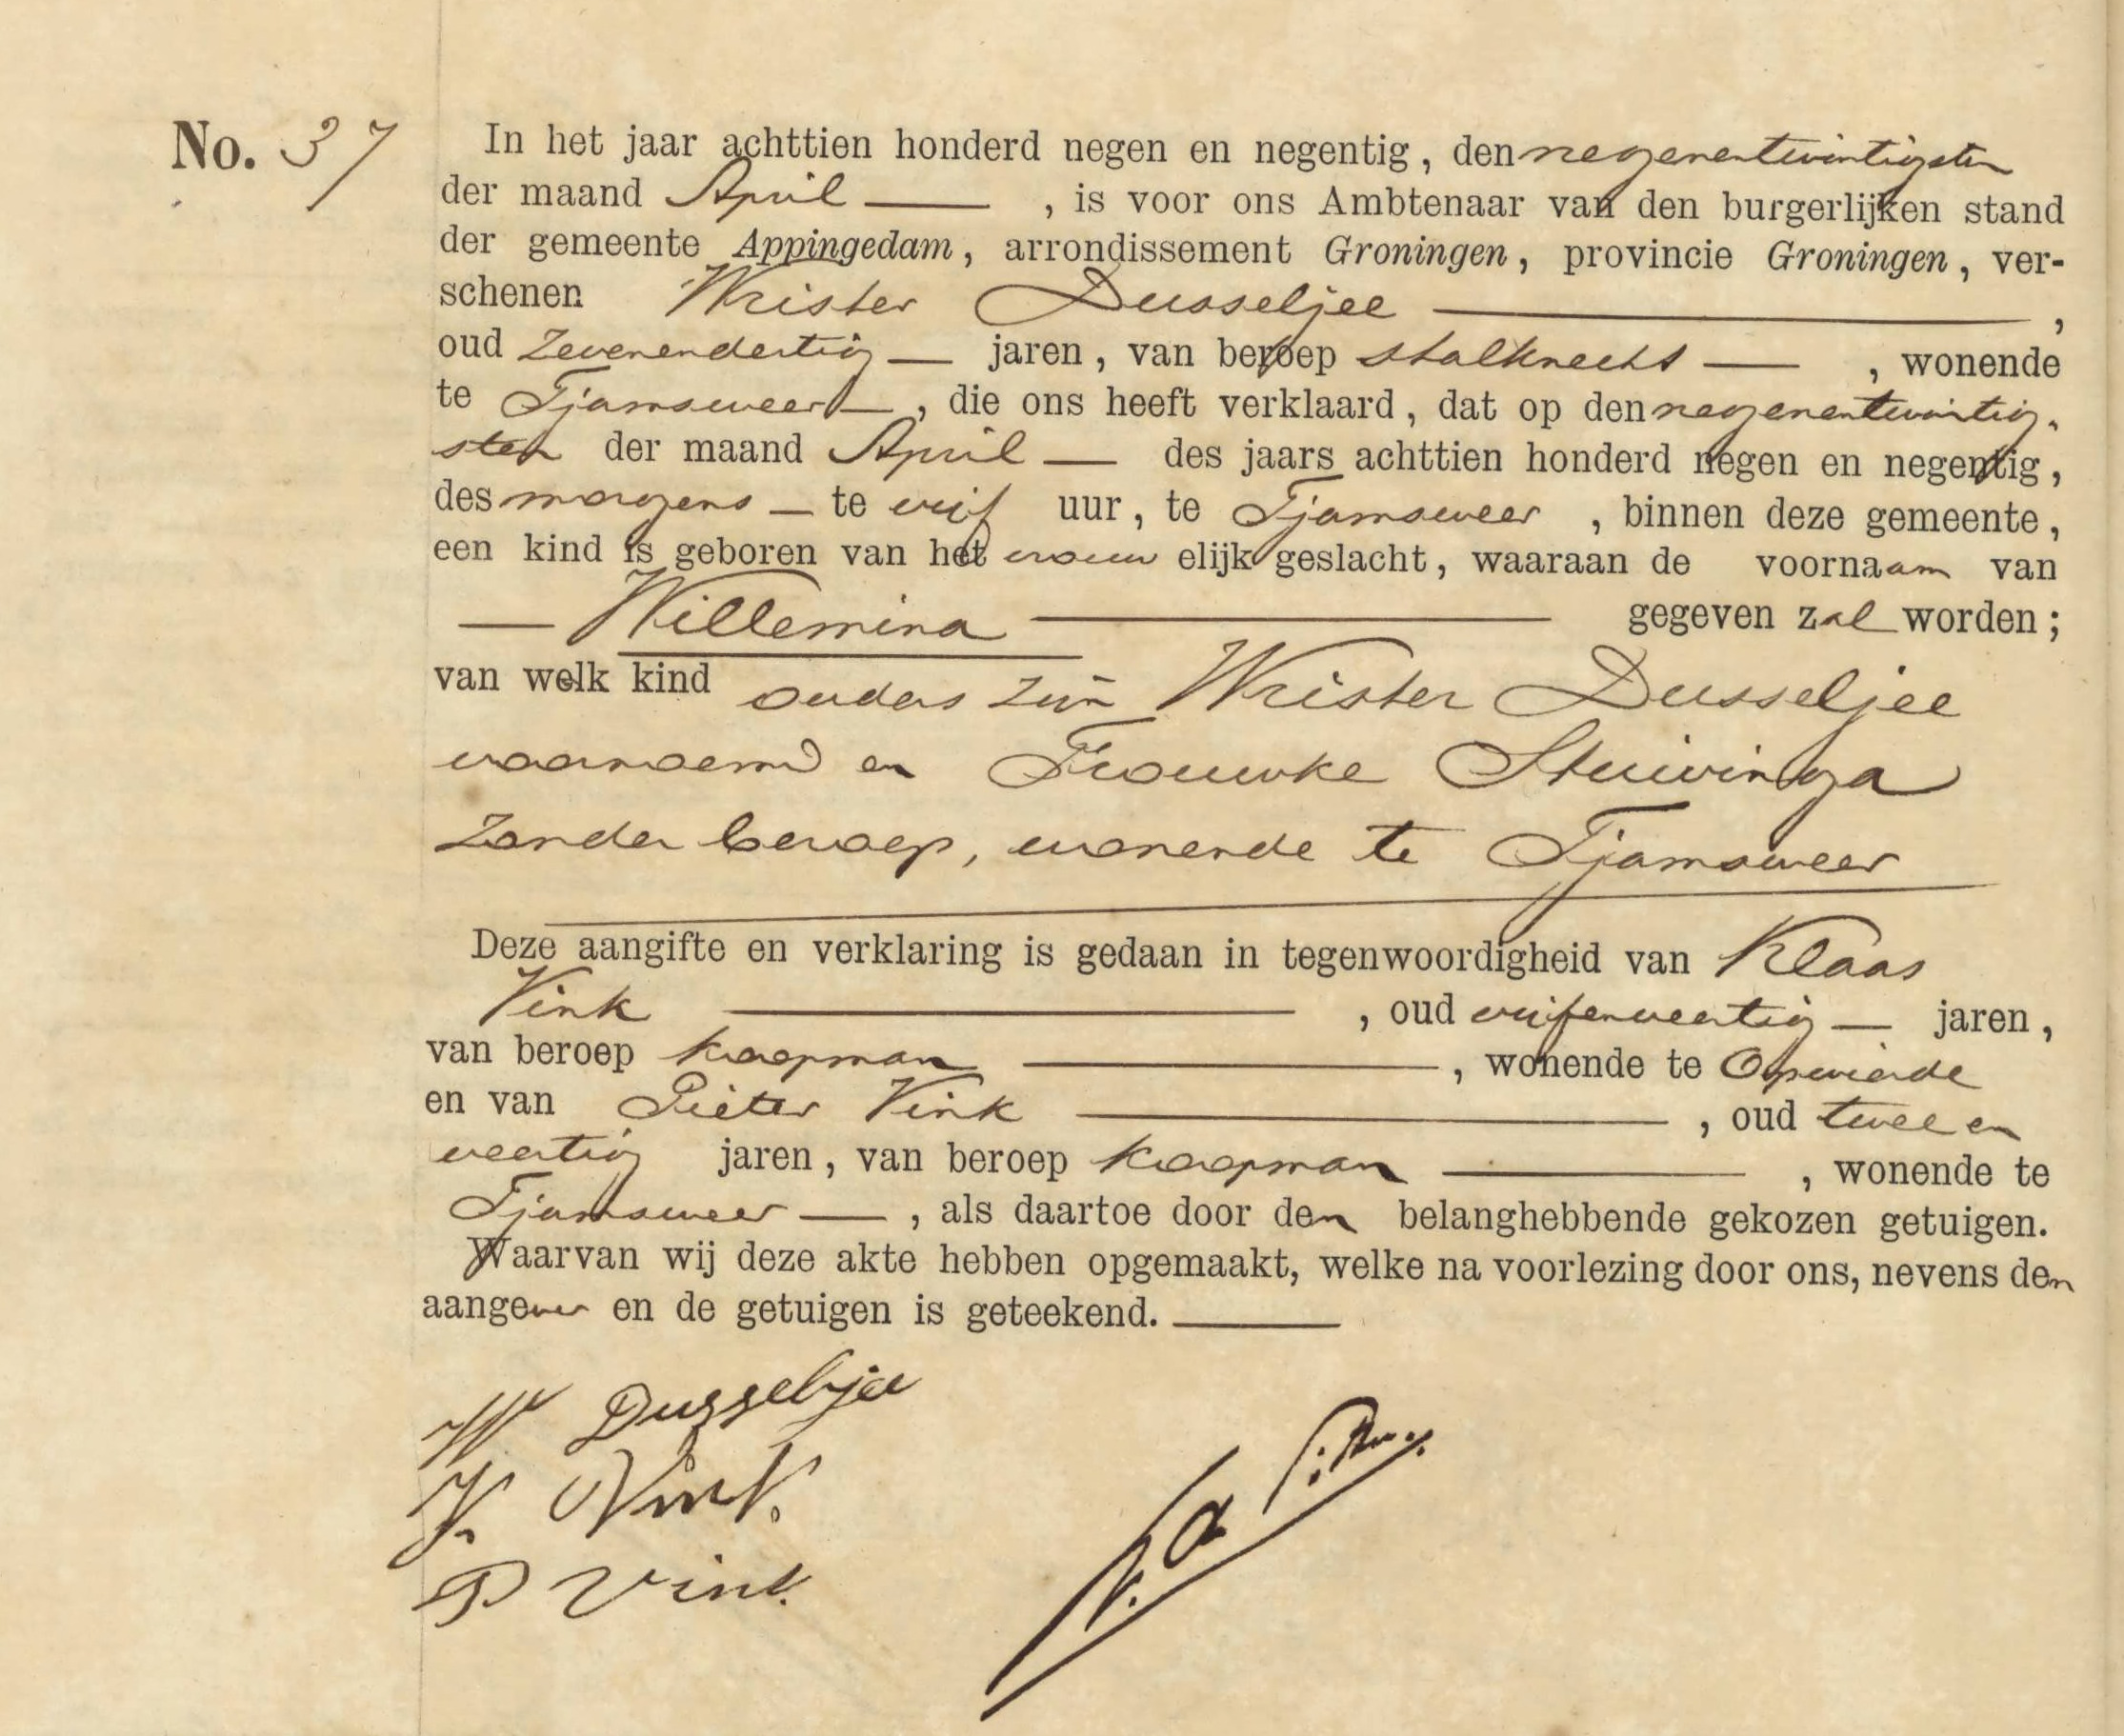 No. 37
In het jaar achttien honderd negen en negentig, den negenentwintigsten
der maand April — , is voor ons Ambtenaar van den burgerlijken stand
der gemeente Appingedam, arrondissement Groningen, provincie Groningen, ver-
schenen Wrister Dusseljee — ,
oud zevenendertig — jaren, van beroep stalknecht — , wonende
te Tjamsweer — , die ons heeft verklaard, dat op den negenentwintig-
sten der maand April — des jaars achttien honderd negen en negentig,
des morgens — te vijf uur, te Tjamsweer , binnen deze gemeente,
een kind is geboren van het vrouwelijk geslacht, waaraan de voornaam van
— Willemina — gegeven zal worden;
van welk kind ouders zijn Wrister Dusseljee
voornoemd en Frouwke Stuivinga
zonder beroep, wonende te Tjamsweer
Deze aangifte en verklaring is gedaan in tegenwoordigheid van Klaas
Vink — , oud vijfenveertig — jaren,
van beroep koopman — , wonende te Opwierde
en van Pieter Vink — , oud twee en
veertig jaren, van beroep koopman — , wonende te
Tjamsweer — , als daartoe door den belanghebbende gekozen getuigen.
Waarvan wij deze akte hebben opgemaakt, welke na voorlezing door ons, nevens den
aangever en de getuigen is geteekend. —
W Dusseljee
K. Vink.
P Vink.